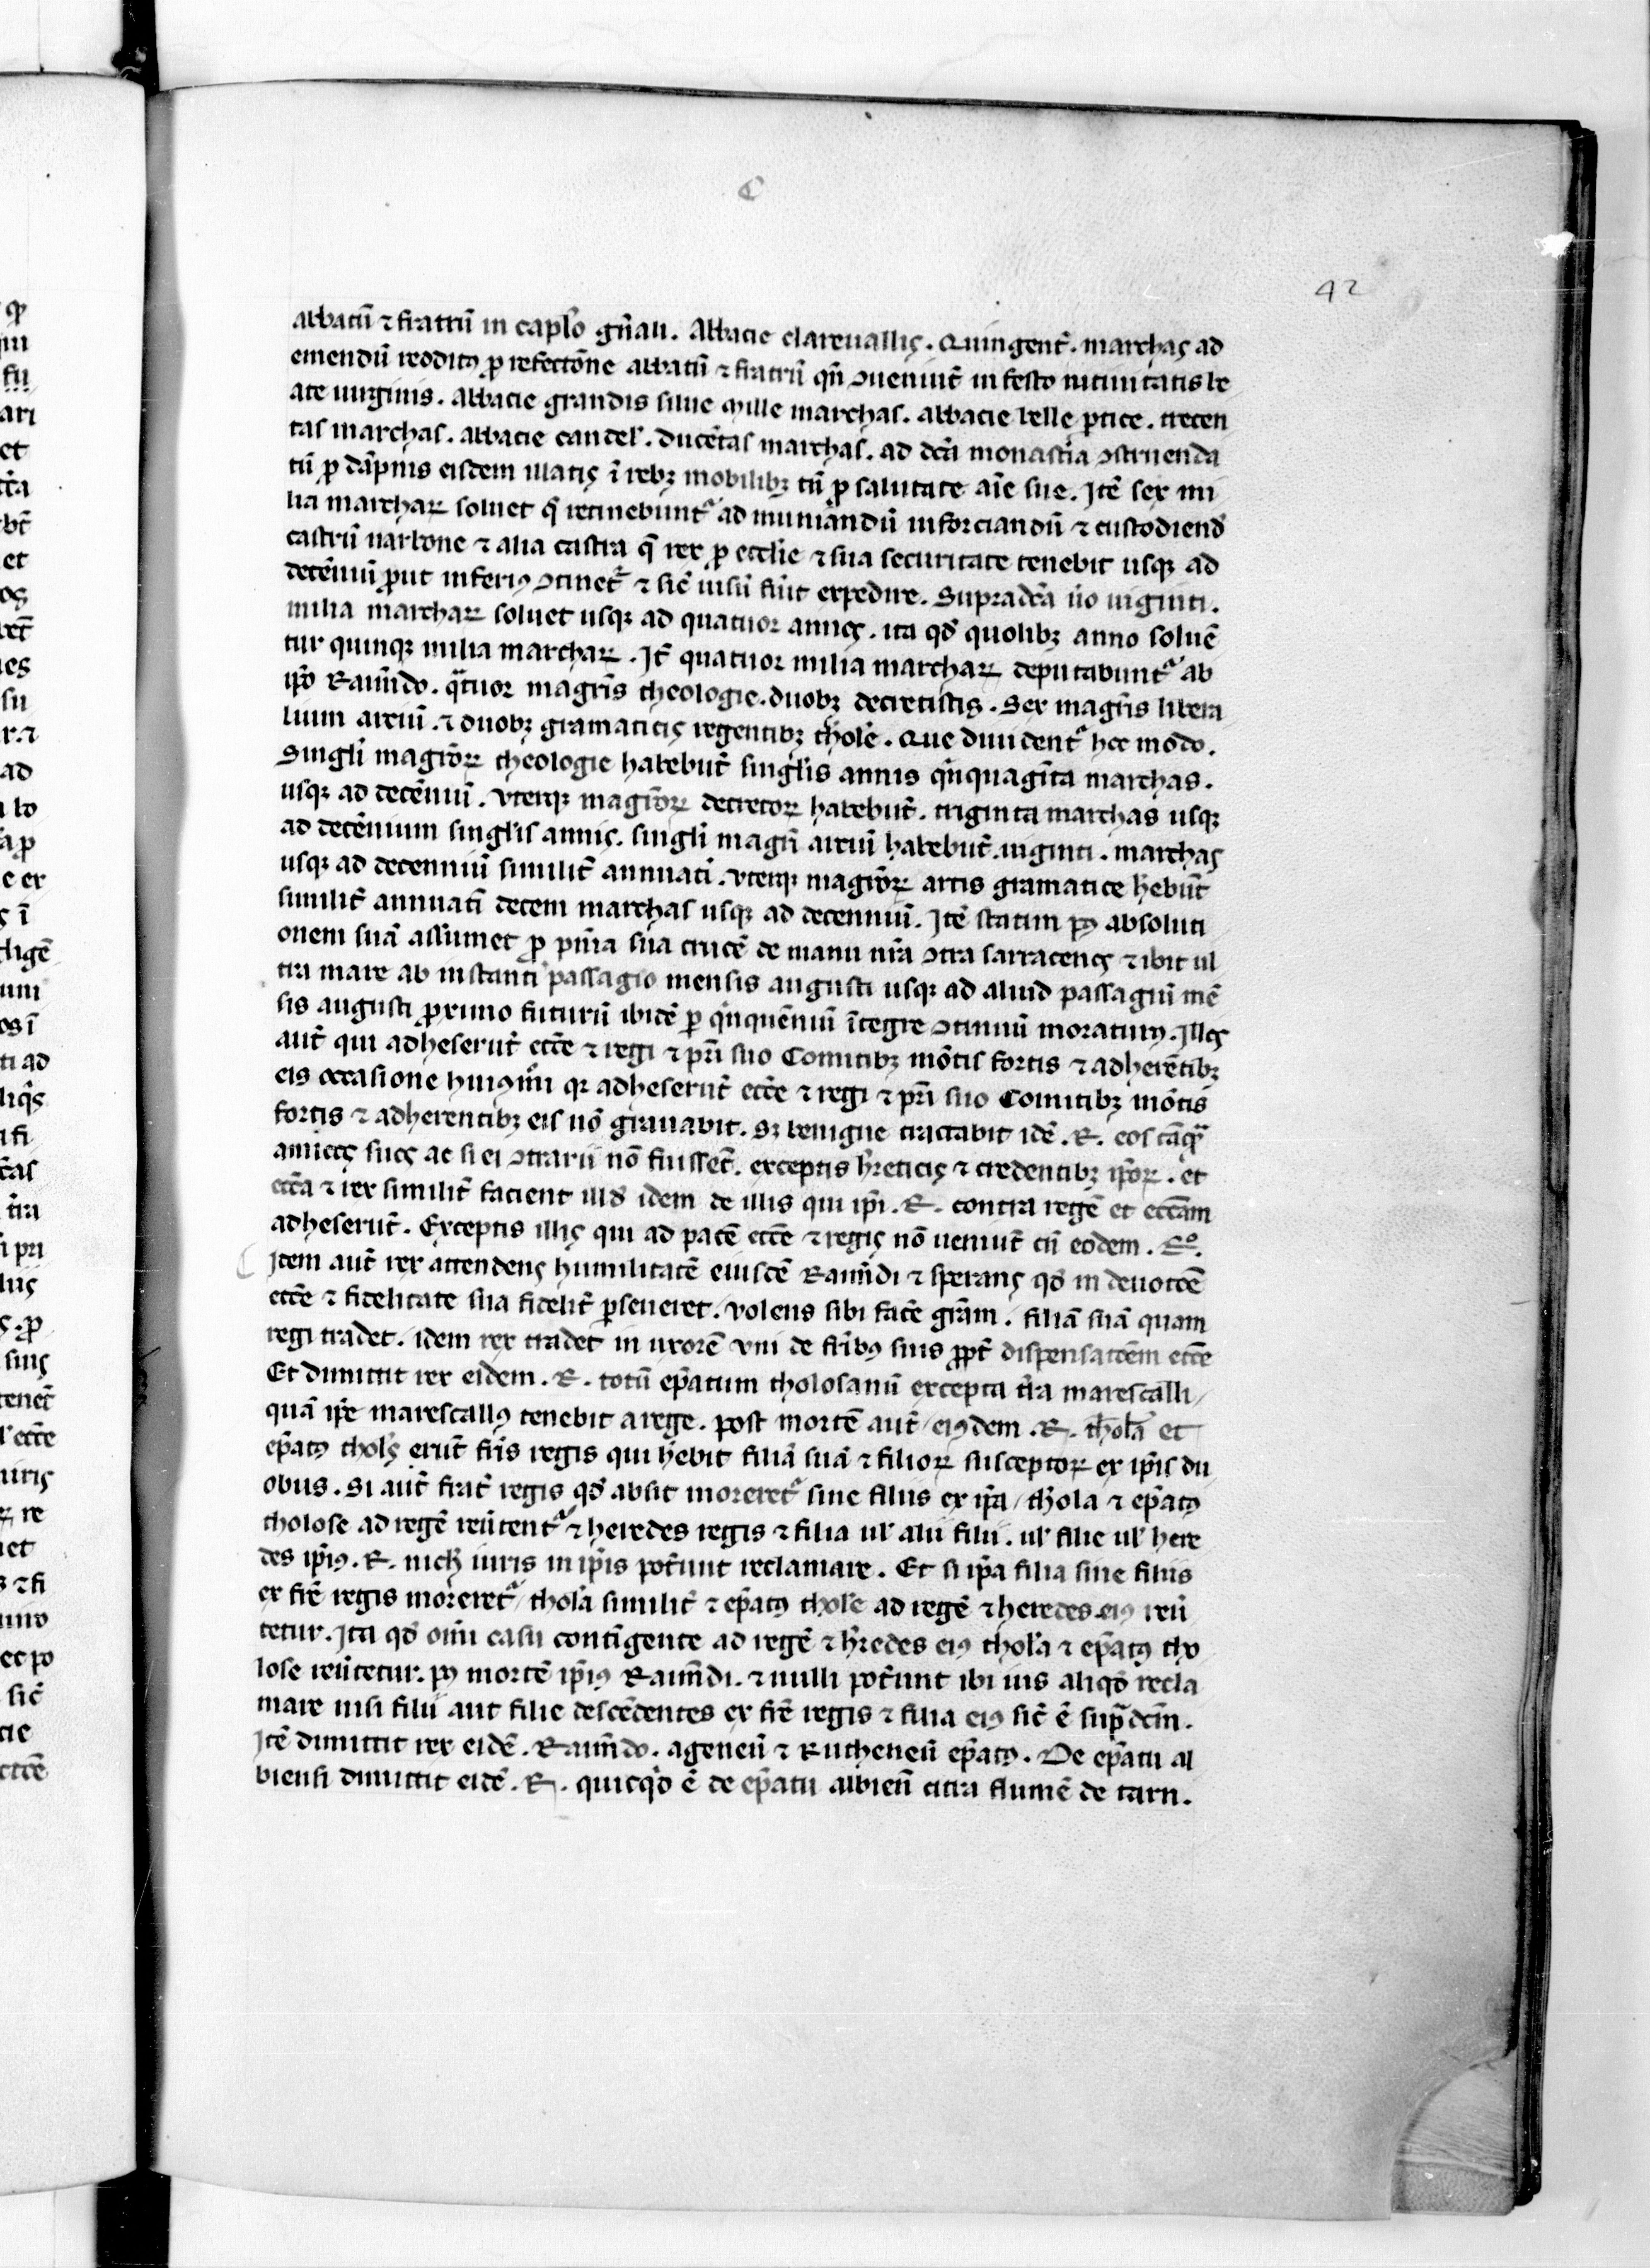 42
abbatū ⁊ fratrū in capl̓o gn̄ali. Abbacie clareuallis. Quingent̄. marchas ad
emendū redditꝰ ꝓ refectōne abbatū ⁊ fratrū qn̄ ꝯueniūt in festo natiuitatis be
ate uirginis. Abbacie grandis silue Mille marchas. abbacie belle ꝑtice. trecen
tas marchas. abbacie candel̓. ducētas marchas. ad dc̄a monastīa ꝯstruenda
tū ꝓ dāpnis eisdem illatis ī rebꝫ mobilibꝫ tū ꝓ salutate aīe sue. Itē sex mi
lia marchaꝝ soluet q̄ retinebunt᷑ ad muniandū inforciandū ⁊ custodiend̄
castrū narbone ⁊ alia castra q̄ rex ꝓ ecclie ⁊ sua securitate tenebit usqꝫ ad
decēniū ꝓut inferiꝰ ꝯtinet᷑ ⁊ sic̄ uisū fūit expedire. Supradc̄a ūo uiginti.
milia marchaꝝ soluet usqꝫ ad quatuor annos. ita qd̄ quolibꝫ anno soluē
tur quinqꝫ milia marchaꝝ. It̄ quatuor milia marchaꝝ deputabunt᷑ ab
ip̄o Raim̄do. qᷓtuor magr̄is theologie. duobꝫ decretistis. Sex magr̄is libera
lium arciū. ⁊ duobꝫ gramaticis regentibꝫ thol̓e. Que diuident᷑ hec modo.
Singl̓i magr̄oꝝ theologie habebūt singl̓is annis qn̄quagīta marchas.
usqꝫ ad decēniū. vterqꝫ magr̄oꝝ decretoꝝ habebūt. triginta marchas usqꝫ
ad decēnium singl̓is annis. singl̓i magr̄i arciū habebūt. uiginti. marchas
usqꝫ ad decenniū similit̄ annuatī. vterqꝫ magr̄oꝝ artis gramatice hēbūt
similit̄ annuatī decem marchas usqꝫ ad decenniū. Itē statim pꝰ absoluti
onem suā assumet ꝓ pn̄ia sua crucē de manu nr̄a ꝯtra sarracenos ⁊ ibit ul
tra mare ab instanti passagio mensis augusti usqꝫ ad aliud passagiū mē
sis augusti ꝓximo futurū ibidē ꝑ qn̄quēniū ītegre ꝯtinuū moraturꝰ. Illos
aūt qui adheserūt ecc̄e ⁊ regi ⁊ pr̄i suo Comitibꝫ mōtis fortis ⁊ adherētibꝫ
eis occasione huiꝰmōi qꝛ adheserūt ecc̄e ⁊ regi ⁊ pr̄i suo Comitibꝫ mōtis
fortis ⁊ adherentibꝫ eis nō grauabit. sꝫ benigne tractabit idē. R. eos tāqᷓ
amicos suos ac si ei ꝯtrarii nō fuissēt. exceptis h̄reticis ⁊ credentibꝫ ip̄oꝝ. et
ecc̄a ⁊ rex similit̄ facient illd̄ idem de illis qui ip̄i. R. contra regē et ecc̄am
adheserūt. Exceptis illis qui ad pacē ecc̄e ⁊ regis nō ueniūt cū eodem. Rº.
Item aūt rex attendens humilitatē eiusdē Raim̄di ⁊ sperans qd̄ in deuocōe
ecc̄e ⁊ fidelitate sua fidelit̄ ꝑseueret. volens sibi facē gr̄am. filiā suā quam
regi tradet. idem rex tradet in uxorē vni de fr̄ibꝰ suis ꝓpt̄ dispensatōem ecc̄e
Et dimittit rex eidem. R. totū ep̄atum tholosanū excepta t̄ra marescalli,
quā ip̄e marescallꝰ tenebit a rege. post mortē aūt eiꝰdem. R. thol̓a et
ep̄atꝰ thol̓ꝯ erūt fr̄is regis qui hēbit filiā suā ⁊ filioꝝ susceptoꝝ ex ip̄is du
obus. si aūt frat̄ regis qd̄ absit moreret᷑ sine filiis ex ip̄a, thol̓a ⁊ ep̄atꝰ
tholose ad regē reūtent᷑ ⁊ heredes regis ⁊ filia ul̓ alii filii. ul̓ filie ul̓ here
des ip̄iꝰ. R. nich̓ iuris in ip̄is pot̄unt reclamare. Et si ip̄a filia sine filiis
ex fr̄e regis moreret᷑, thol̓a similit̄ ⁊ ep̄atꝰ thol̓e ad regē ⁊ heredes eiꝰ reū
tetur. Ita qd̄ oīni casu contīgente ad regē ⁊ h̄redes eiꝰ thol̓a ⁊ ep̄atꝰ tho
lose reūtetur. pꝰ mortē ip̄iꝰ Raim̄di. ⁊ nulli pot̄unt ibi ius aliqd̄ recla
mare nisi filii aut filie descēdentes ex fr̄e regis ⁊ filia eiꝰ sic̄ ē supᷓdcm̄.
Itē dimittit rex eidē. Raim̄do. agenenū ⁊ Ruthenenū ep̄atꝰ. De ep̄atu al
biensi dimittit eidē. R. quicqd̄ ē de ep̄atu albiens̄ citra flumē de tarn.